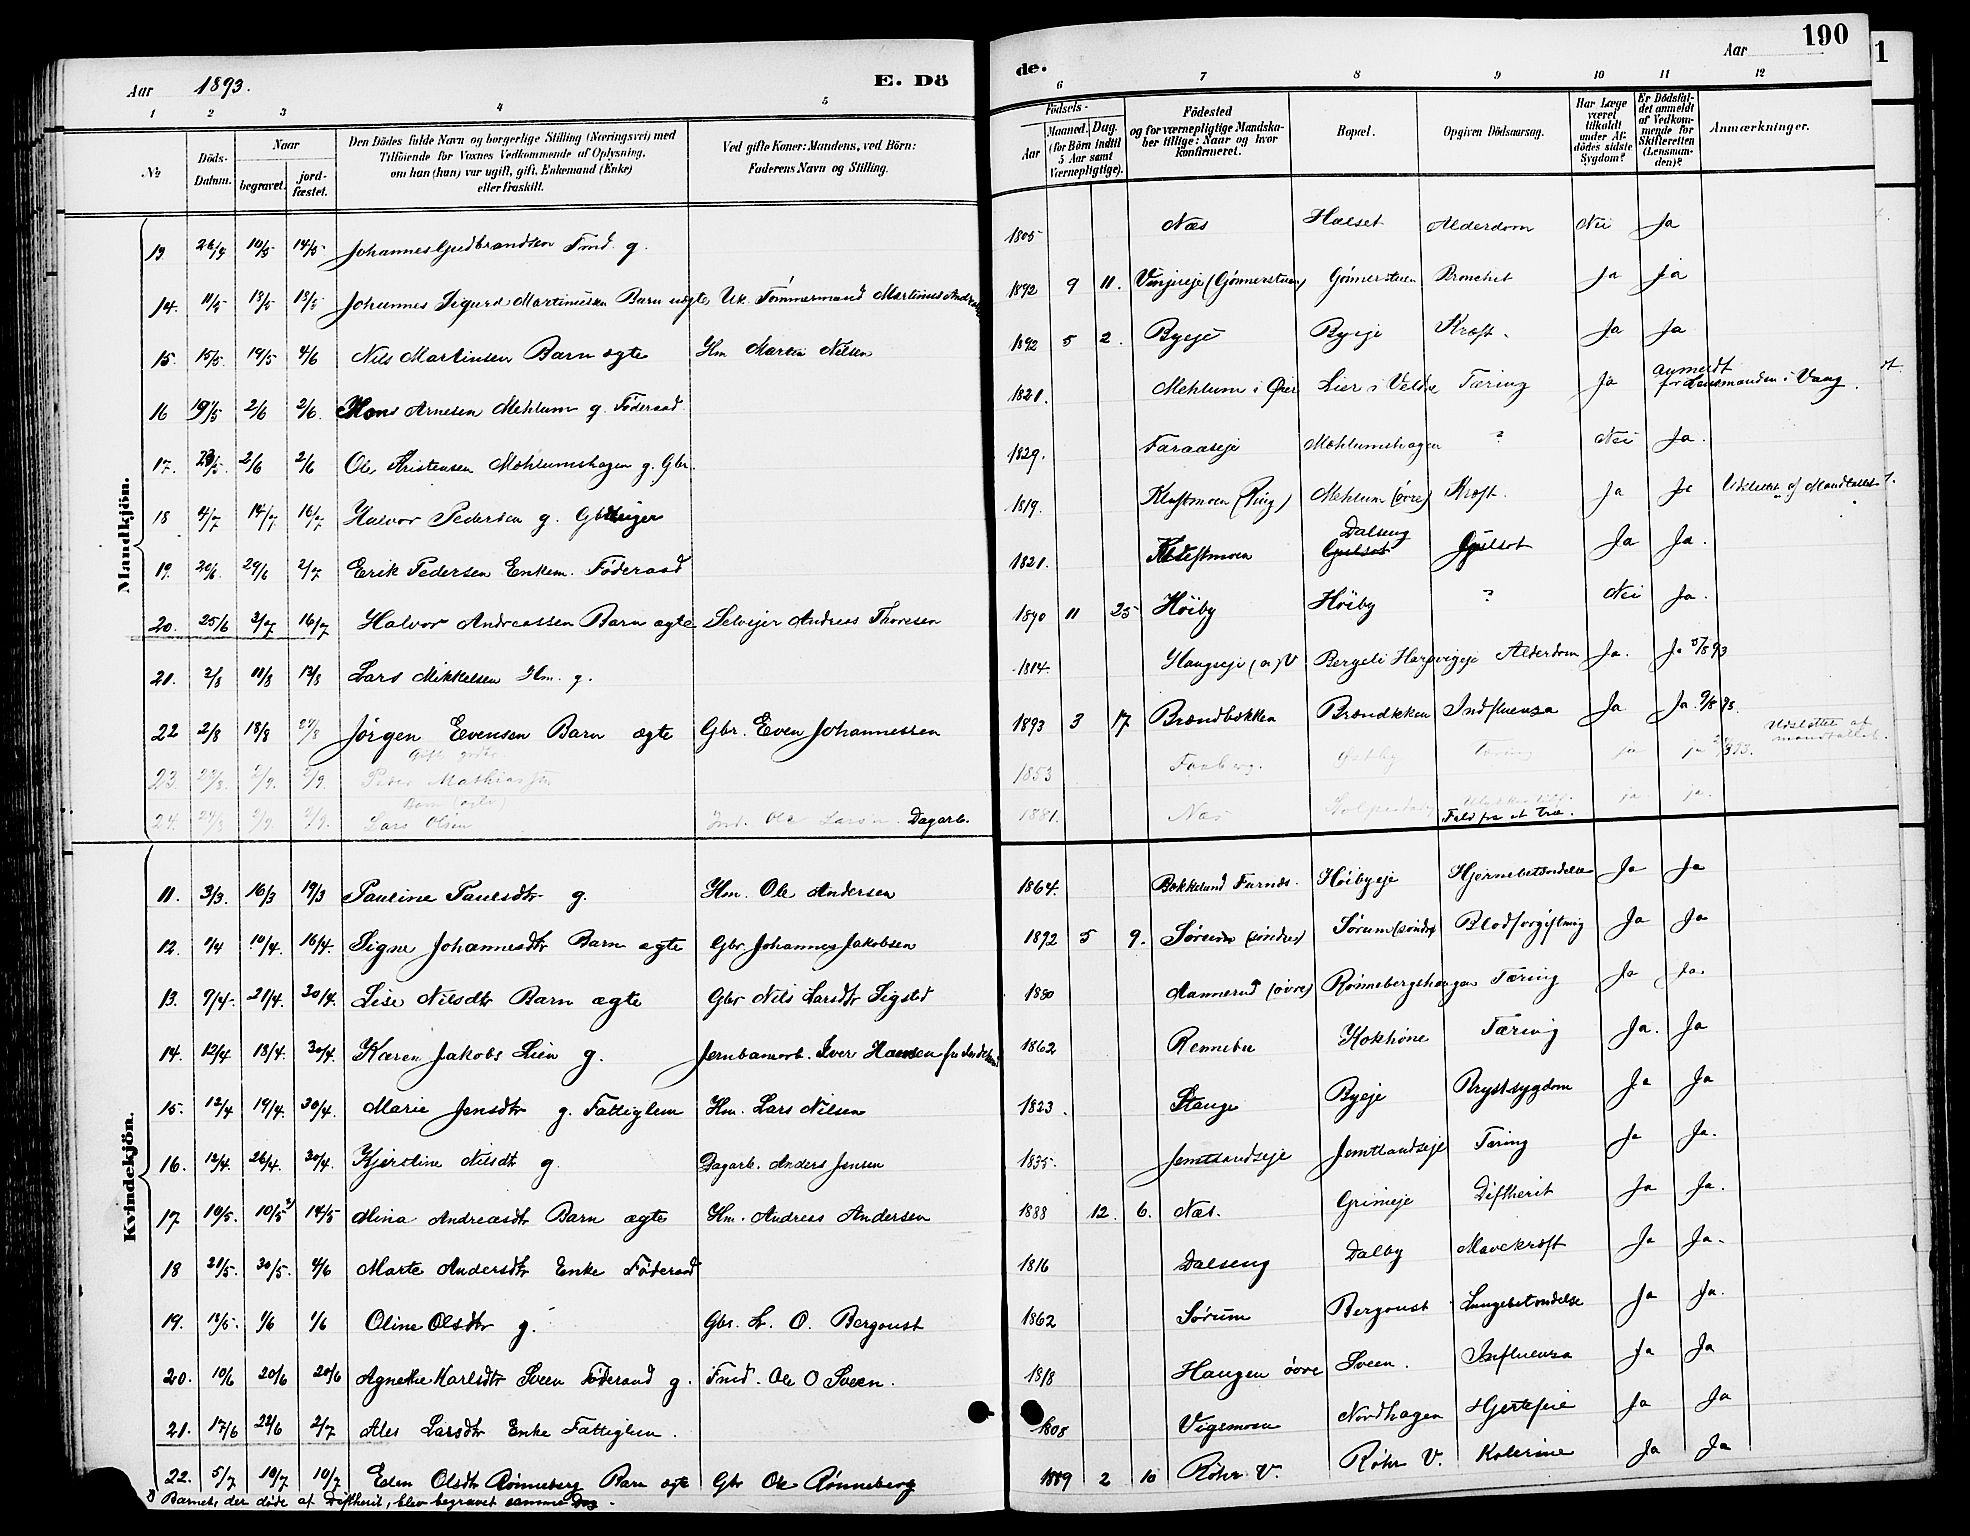 Aar 1893. E. Dö
de. Aar 190
1
1 2 3 4 5 6 7 8 9 10 11 12
No
Döds-Datum.
Naar
begravet.
jordfæstet.
Den Dödes fulde Navn og borgerlige Stilling (Næringsvei) med
Tilföiende for Voxnes Vedkommende af Oplysning,
om han (hun) var ugift, gift, Enkemand (Enke)
eller fraskilt.
Ved gifte Koner: Mandens, ved Börn:
Faderens Navn og Stilling.
Födsels-
Aar
Maaned. Dag.
(for Börn indtil
5 Aar samt
Værnepligtige).
Födested
og for værnepligtige Mandska-
ber tillige: Naar og hvor
konfirmeret.
Bopæl.
Opgiven Dödsaarsag.
Har Læge
været
tilkaldt
under Af-
dödes sidste
Sygdom?
Er Dödsfal-
det anmeldt
af Vedkom-
mende for
Skifteretten
(Lensman-
den)?
Anmærkninger.
Mandkjön.
13 26/4 10/5 14/5 Johannes Gudbrandsen g. 1805 Næs Halset Alderdom Nei Ja
14. 11/5 13/5 13/5 Johannes Sigurd Martiniussen Barn uægte Uk. Tømmermand Martinus 1892 9 11. Gønnerstuen Bronchit Ja Ja
15. 15/5 19/5 4/6 Nils Martinsen Barn ægte Hm Martin Nilsen 1892 5 2. Byeje Byeje Kræft. Ja Ja
16 19/5 2/6 2/6 Hans Arnesen Mehlum g. Føderaad 1821. Mehlum i Øier Lier i Veldre Tæring Ja anmeldt
for Lensmanden i Vang.
17. 23/5 2/6 2/6 Ole Kristensen Mehlumshagen g. Gbr. 1829. Faraaseje Mehlumshagen ? Nei Ja.
18 4/7 14/7 16/7 Halvor Pedersen g. 1819. Kluftmoen (Ring) Mehlum (øvre) Kræft. Ja Ja Udslettet af Mandtallet.
19. 20/6 29/6 2/7 Erik Pedersen Enkem. Føderaad 1821. Kluftmoen Dalseng Gulsot Ja Ja.
20. 25/6 2/7 16/7 Halvor Andreassen Barn ægte Selvejer Andreas Thoresen 1890 11 25 Høiby Høiby ? Nei Ja.
21. 2/8 11/8 13/8 Lars Mikkelsen Hm. g. 1814. Bergeli Alderdom Ja. Ja 5/8 93
22 2/8 18/8 27/8 Jørgen Evensen Barn ægte Gbr. Even Johannessen 1893 3 17. Brændbækken Brændbækken Influensa Ja Ja 9/8 93.
23. 2/9. 2/9. Peder Mathiassen 1853 Faaberg. Tæring ja ja Udslettet af
mandtallet.
24. 2/9 Barn (ægte)
Lars Olsen Ole Larsen. Dagarb. 1881. Næs Ulykkestilf.
Fald fra et træ. ja ja.
Kvindekjön.
11. 3/3. 16/3 19/3 Pauline Paulsdtr g. Hm. Ole Andersen 1864. Bækkelund Furnes. Høibyeje Hjernebetændelse Ja Ja
12. 1/4 10/4. 16/4. Signe Johannesdtr Barn ægte Gbr Johannes Jakobsen 1892 5 9. Sørum (søndre) Sørum (søndre) Blodforgiftning Ja Ja
13. 9/4. 21/4. 30/4. Lise Nilsdtr Barn ægte Gbr Nils Larsdtr Sigsted Rønnebergshaugen Tæring Ja Ja.
14. 12/4 18/4. 30/4. Karen Jakobs Lien g. Jernbanearb. Iver Hansen 1862 Rennebu Tæring Ja. Ja
15. 12/4 19/4. 30/4. Marie Jensdtr g. Fattiglem Hm. Lars Nilsen 1823. Stange Byeje Brystsygdom Ja Ja
16. 12/4. 26/4. 30/4. Kjerstine Nilsdtr g. Dagarb. Anders Jensen 1835. Jemtlandseje Jemtlandseje Tæring Ja Ja.
17. 10/5. 10/5 14/5 Mina Andreasdtr Barn ægte Hm. Andreas Andersen 1888 12. 6. Næs. Grimeje Diftherit Ja Ja.
18 21/5. 30/5. 4/6 Marte Andersdtr Enke Føderaad 1816 Dalseng Dalby Mavekræft Ja Ja.
19. 12/5. 1/6 1/6 Oline Olsdtr g. Gbr. L. O. Bergoust 1862 Sørum Bergoust Lungebetændelse Ja Ja.
20. 10/6 20/6 20/6 Agnethe Karlsdtr Sveen Føderaad g. Ole O Sveen. 1818 Haugen øvre Sveen. Influensa Ja Ja
21. 17/6 22/6 2/7 Ales Larsdtr Enke Fattiglem. 1808 Vigsmoen Nordhagen Hjertefeil Ja Ja
22. 5/7 10/7 10/7 Olsdtr Rønneberg Barn ægte Gbr Ole Rønneberg 1889 2 10 Røhr V. Røhr V. Kolerine Ja Ja
Barnet, der døde af Diftherit, blev begravet samme Dag.